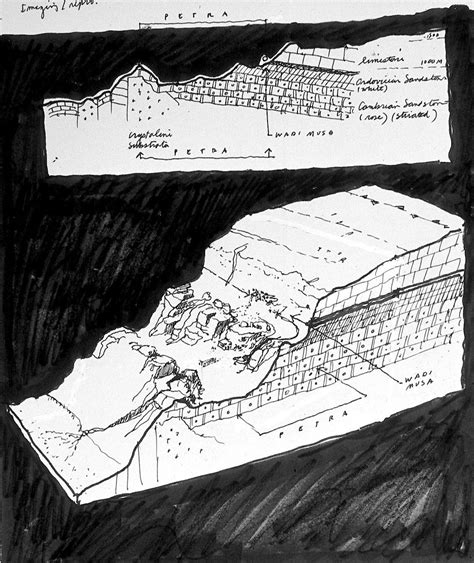 Imaging / repro.
PETRA
1300
limestone
1000M
Ordovician Sandston
(white)
Cambrian Sandston
(rose) (striated)
Crystalini
Substrata
WADI MUSA
PETRA
WADI
MUSA
PETRA